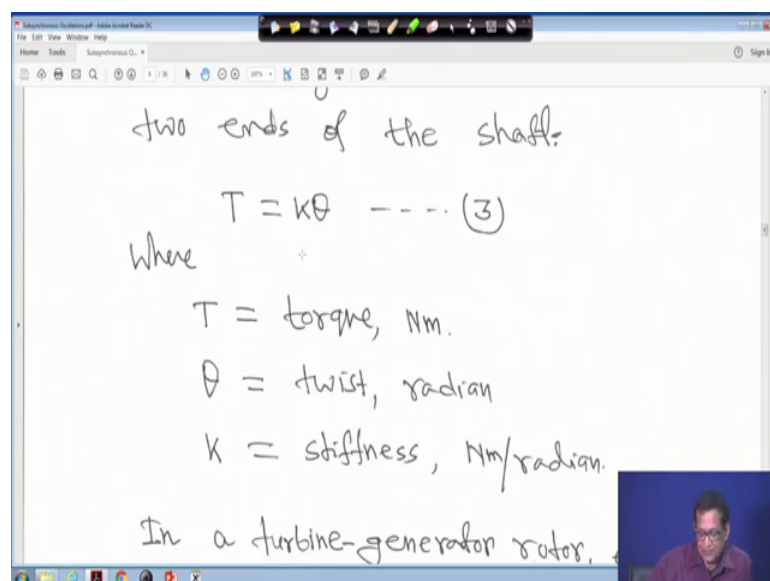 Subsynchronous Oscillations.pdf - Adobe Acrobat Reader DC
File Edit View Window Help
Home Tools Subsynchronous O... ×
Sign In
two ends of the shaft.
T = Kθ ---- (3)
Where
T = torque, Nm.
θ = twist, radian
K = stiffness, Nm/radian.
In a turbine-generator rotor,